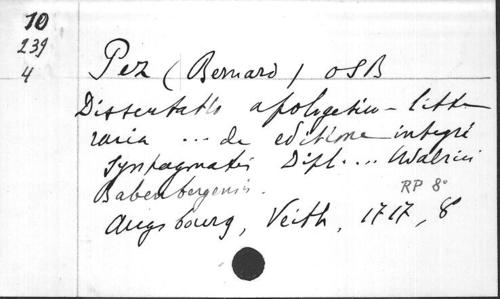 10
239
4
Pez (Bernard) OSB
Dissertatio apologetico-litte
raria ... de editione integri
Syntagmatis Dipl. ... Udalrici
Babenbergensis.
RP 8°
Augsbourg, Veith, 1717, 8°